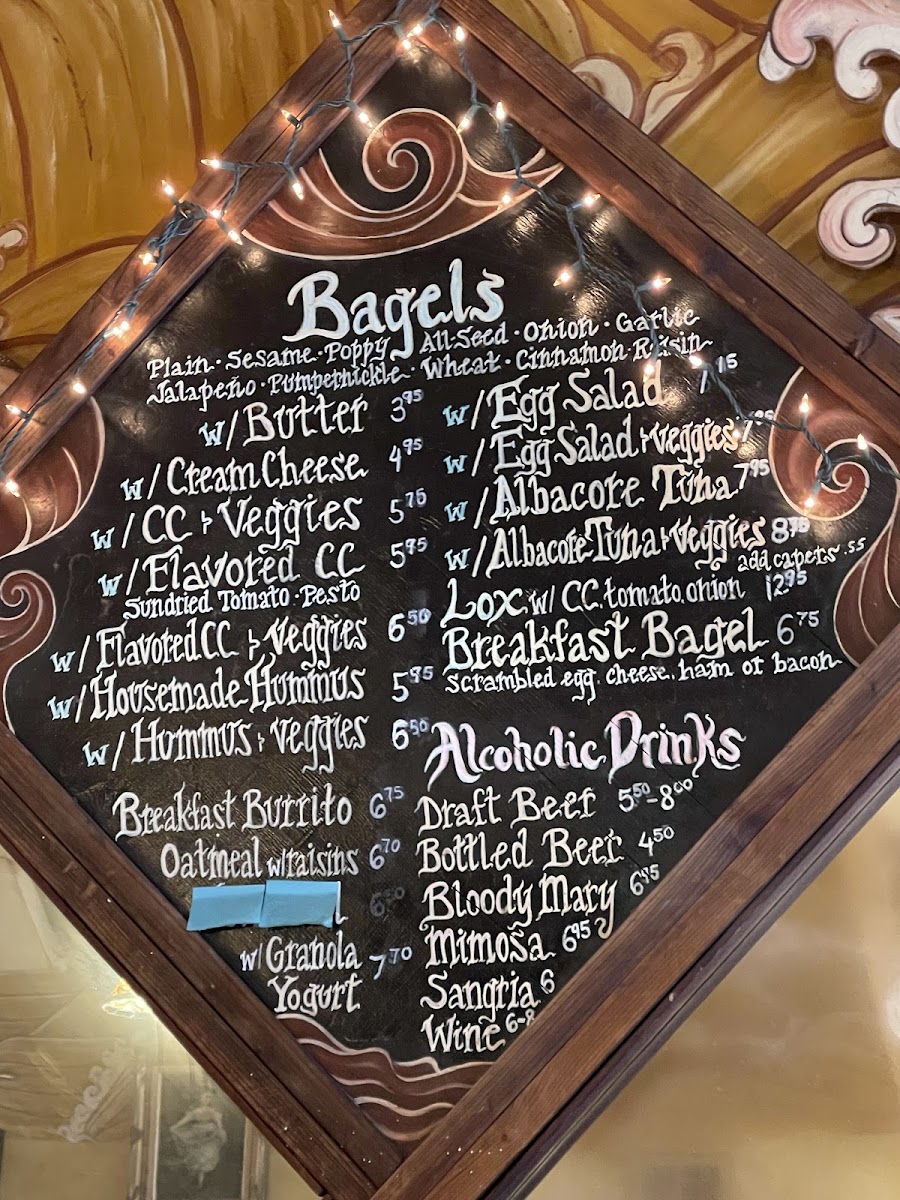 Bagels
Plain · Sesame · Poppy · All-Seed · Onion · Garlic
Jalapeño · Pumpernickle · Wheat · Cinnamon · Raisin
w/ Butter 3.95
w/ Cream Cheese 4.95
w/ CC + Veggies 5.75
w/ Flavored CC 5.95
Sundried Tomato · Pesto
w/ Flavored CC + Veggies 6.50
w/ Housemade Hummus 5.95
w/ Hummus + Veggies 6.50
Breakfast Burrito 6.75
Oatmeal w/raisins 6.70
w/ Granola 7.70
Yogurt
w/ Egg Salad 7.15
w/ Egg Salad + Veggies
w/ Albacore Tuna 7.95
w/ Albacore Tuna + Veggies
add capers .55
Lox w/ CC, tomato, onion 12.95
Breakfast Bagel 6.75
scrambled egg, cheese, ham or bacon
Alcoholic Drinks
Draft Beer 5.50-8.00
Bottled Beer 4.50
Bloody Mary 6.95
Mimosa 6.95
Sangria 6
Wine 6-8